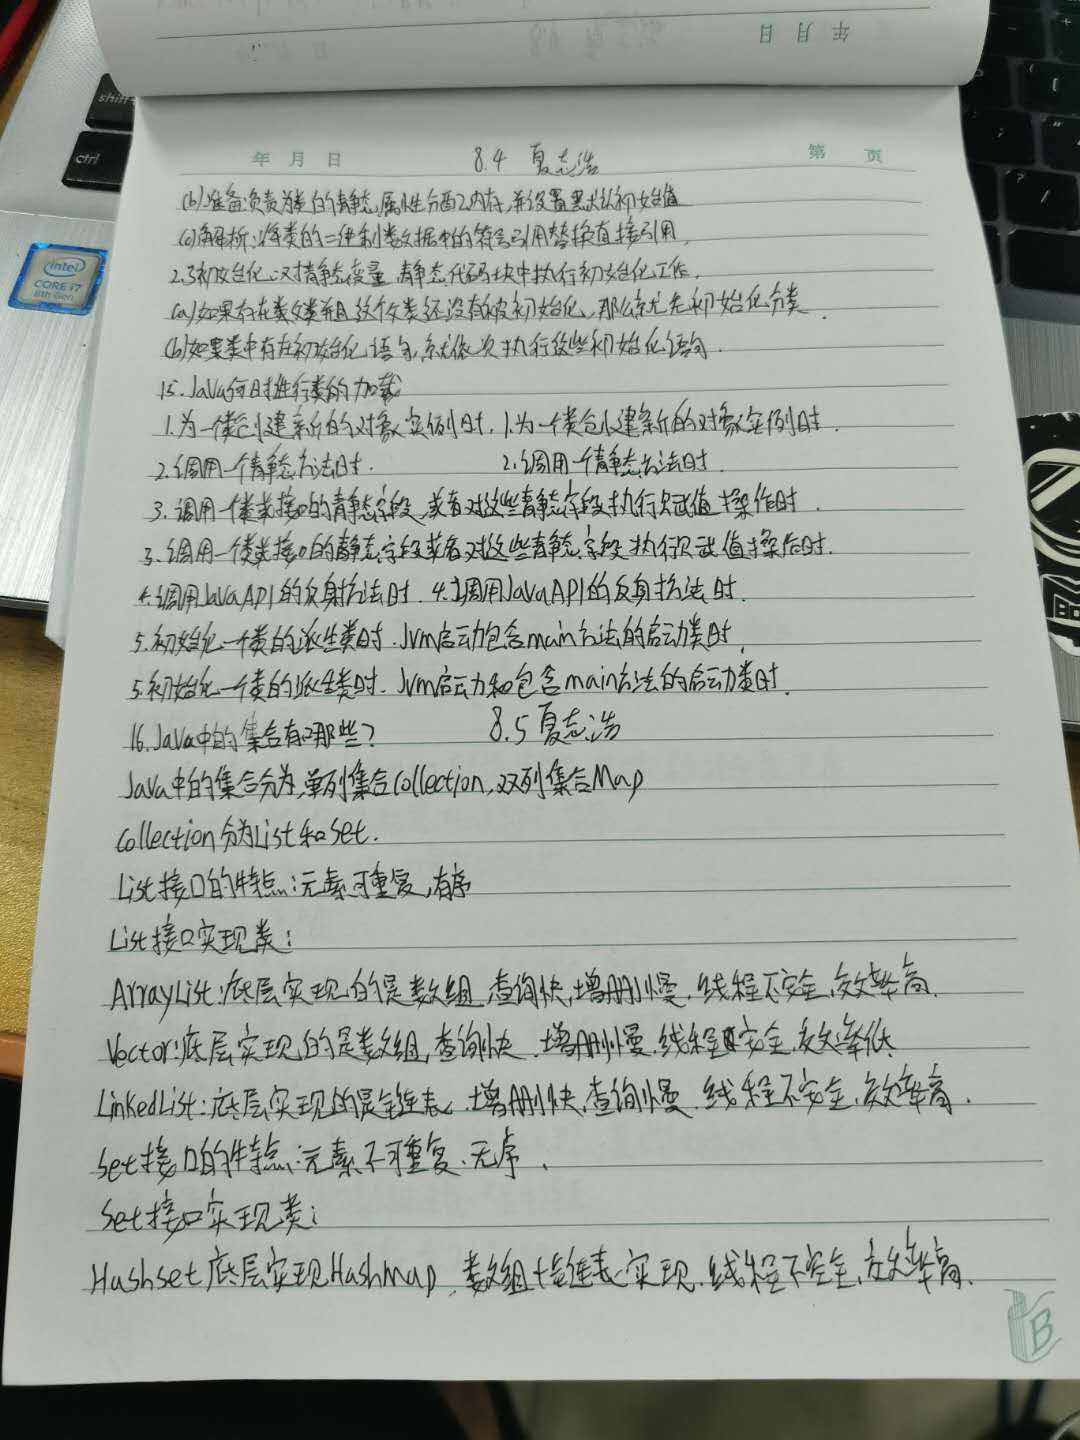 年 月 日
shift
ctrl
intel
CORE i7
8th Gen
年 月 日 8.4 夏志浩 第 页
(b)准备:负责为类的静态属性分配内存,并设置默认初始值
(c)解析:将类的二进制数据中的符号引用替换直接引用.
2.3初始化:对静态变量,静态代码块中执行初始化工作.
(a)如果存在类父类并且这个父类还没有被初始化,那么就先初始化父类.
(b)如果类中存在初始化语句,就依次执行这些初始化语句.
15.Java何时进行类的加载
1.为一个类创建新的对象实例时. 1.为一个类创建新的对象实例时.
2.调用一个静态方法时. 2.调用一个静态方法时.
3.调用一个类或接口的静态字段,或者对这些静态字段执行赋值操作时.
3.调用一个类或接口的静态字段或者对这些静态字段执行赋值操作时.
4.调用JavaAPI的反射方法时. 4.调用JavaAPI的反射方法时.
5.初始化一个类的派生类时.Jvm启动包含main方法的启动类时.
5.初始化一个类的派生类时.Jvm启动和包含main方法的启动类时.
16.Java中的集合有哪些? 8.5 夏志浩
Java中的集合分为,单列集合Collection,双列集合Map
Collection分为List和Set.
List接口的特点:元素可重复,有序
List接口实现类:
ArrayList:底层实现的是数组,查询快,增删慢,线程不安全,效率高.
Vector:底层实现的是数组,查询快,增删慢.线程安全,效率低
LinkedList:底层实现的是链表,增删快,查询慢,线程不安全,效率高.
Set接口的特点:元素不可重复.无序.
Set接口实现类:
Hashset底层实现HashMap,数组+链表实现,线程不安全,效率高.
B